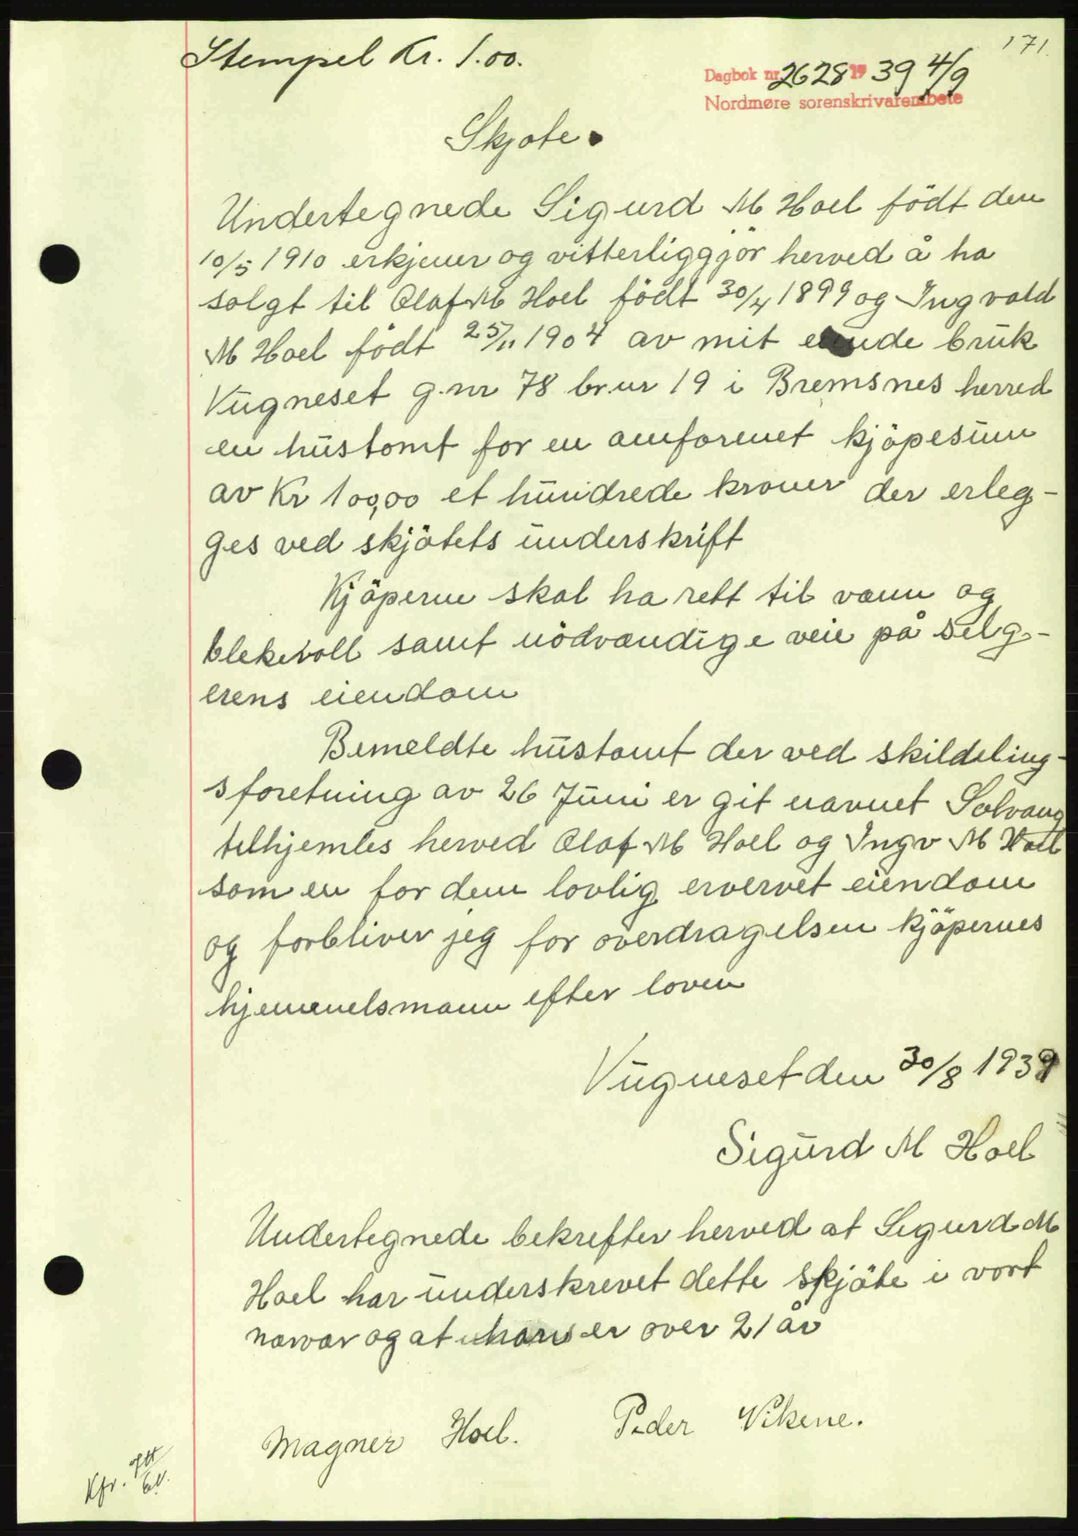 171.
Stempel Kr. 1.00.
Dagbok nr. 2628 1939 4/9
Nordmøre sorenskrivarembete
Skjøte.
Undertegnede Sigurd M Hoel födt den
10/5 1910 erkjener og vitterliggjör herved å ha
solgt til Olaf M Hoel födt 30/4 1899 og Ingvald
M Hoel födt 25/11 1904 av mit eiende bruk
Vugneset g.nr 78 br.nr 19 i Bremsnes herred
en hustomt for en omforenet kjöpesum
av Kr 100,00 et hundrede kroner der erleg-
ges ved skjötets underskrift
Kjöperne skal ha rett til vann og
blekevoll samt nödvændige veie på selg-
erens eiendom
Bemeldte hustomt der ved skildeling-
sforetning av 26 Juni er git navnet Solvang
tilhjemles herved Olaf M Hoel og Ingv M Hoel
som en for dem lovlig ervervet eiendom
og forbliver jeg for overdragelsen kjöpernes
hjemmelsmann efter loven
Vugneset den 30/8 1939
Sigurd M Hoel
Undertegnede bekrefter herved at Sigurd M
Hoel har underskrevet dette skjöte i vort
nærvær og at han er over 21 år
Magner Hoel. Peder Vikene.
Kfr.